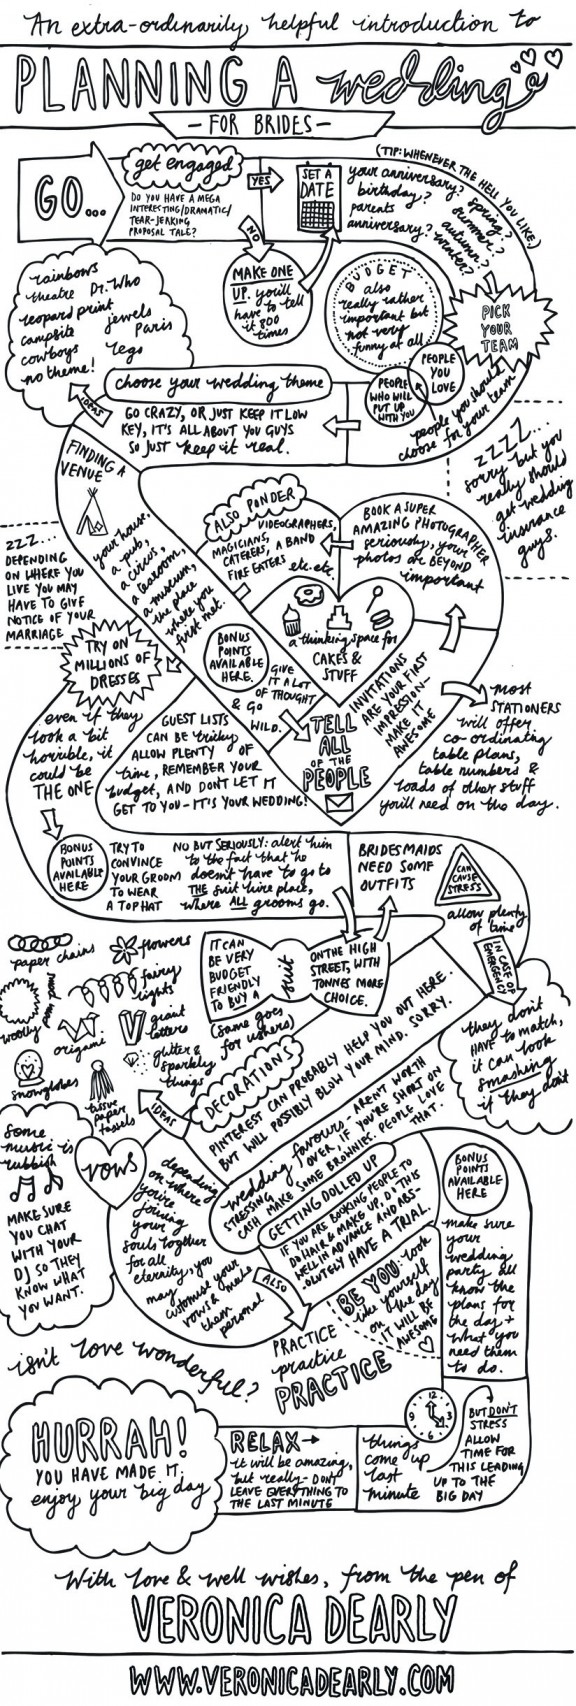 An extra-ordinarily helpful introduction to
PLANNING A wedding
- FOR BRIDES -
GO...
get engaged
DO YOU HAVE A MEGA
INTERESTING/DRAMATIC/
TEAR-JERKING
PROPOSAL TALE?
YES
NO
MAKE ONE
UP. you'll
have to tell
it 800
times
SET A
DATE
(TIP: WHENEVER THE HELL YOU LIKE)
your anniversary?
birthday?
parents
anniversary?
spring?
summer?
autumn?
winter?
PICK
YOUR
TEAM
BUDGET
also
really rather
important but
not very
funny at all
PEOPLE
YOU
LOVE
PEOPLE
WHO WILL
PUT UP
WITH YOU
people you should
choose for your team
zzzz...
sorry but you
really should
get wedding
insurance
guys.
choose your wedding theme
GO CRAZY, OR JUST KEEP IT LOW
KEY, IT'S ALL ABOUT YOU GUYS
SO JUST keep it real.
IDEAS
rainbows
theatre Dr. Who
leopard print
jewels
campsite
Paris
cowboys
lego
no theme!
FINDING A
VENUE
your house,
a pub,
a circus,
a tearoom,
a museum,
the place
where you
first met.
zzz...
DEPENDING
ON WHERE YOU
LIVE YOU MAY
HAVE TO GIVE
NOTICE OF YOUR
MARRIAGE
BONUS
POINTS
AVAILABLE
HERE.
GIVE
IT A LOT
OF THOUGHT
& GO
WILD.
TELL
ALL
OF THE
PEOPLE
INVITATIONS
ARE YOUR FIRST
IMPRESSION-
MAKE IT
AWESOME
most
STATIONERS
will offer
co-ordinating
table plans,
table numbers &
loads of other stuff
you'll need on the day.
BOOK A SUPER
AMAZING PHOTOGRAPHER
seriously, your
photos are BEYOND
important
ALSO PONDER
VIDEOGRAPHERS,
MAGICIANS,
CATERERS, A BAND
FIRE EATERS etc. etc.
a thinking space for
CAKES &
STUFF
GUEST LISTS
CAN BE tricky
ALLOW PLENTY OF
time, REMEMBER YOUR
budget, AND DON'T LET IT
GET TO YOU - IT'S YOUR WEDDING!
TRY ON
MILLIONS OF
DRESSES
even if they
look a bit
horrible, it
could be
THE ONE
BONUS
POINTS
AVAILABLE
HERE
TRY TO
CONVINCE
YOUR GROOM
TO WEAR
A TOP HAT
NO BUT SERIOUSLY: alert him
to the fact that he
doesn't have to go to
THE suit hire place,
where ALL grooms go.
IT CAN
BE VERY
BUDGET
FRIENDLY
TO BUY A
suit
ON THE HIGH
STREET, WITH
TONNES MORE
CHOICE.
(same goes
for ushers)
BRIDESMAIDS
NEED SOME
OUTFITS
CAN
CAUSE
STRESS
allow plenty
of time
IN CASE OF
EMERGENCY
they don't
HAVE to match,
it can look
smashing
if they don't
DECORATIONS
PINTEREST CAN PROBABLY HELP YOU OUT HERE.
BUT WILL POSSIBLY BLOW YOUR MIND. SORRY.
IDEAS
paper chains
flowers
fairy
lights
woolly
origami
giant
letters
glitter &
sparkly
things
snowglobes
tissue
paper
tassels
wedding favours - AREN'T WORTH
STRESSING OVER, IF YOU'RE SHORT ON
CASH MAKE SOME BROWNIES. PEOPLE LOVE
THAT.
GETTING DOLLED UP
IF YOU ARE BOOKING PEOPLE TO
DO HAIR & MAKE UP, DO THIS
WELL IN ADVANCE AND ABS-
OLUTELY HAVE A TRIAL.
BE YOU: look
like yourself
on the day
IT WILL BE
AWESOME
vows
depending
on where
you're
joining
your
souls together
for all
eternity, you
may
customise your
vows & make
them
personal
ALSO
PRACTICE
practice
PRACTICE
some
music is
rubbish
MAKE SURE
YOU CHAT
WITH YOUR
DJ SO THEY
KNOW WHAT
YOU WANT.
BONUS
POINTS
AVAILABLE
HERE
make sure
your
wedding
party all
know the
plans for
the day +
what you
need them
to do.
isn't love wonderful?
12
3
6
9
BUT DON'T
STRESS
ALLOW
TIME FOR
THIS LEADING
UP TO THE
BIG DAY
things
come up
last
minute
RELAX →
it will be amazing,
but really - DON'T
LEAVE EVERYTHING TO
THE LAST MINUTE
HURRAH!
YOU HAVE MADE IT,
enjoy your big day
With love & well wishes, from the pen of
VERONICA DEARLY
WWW.VERONICADEARLY.COM